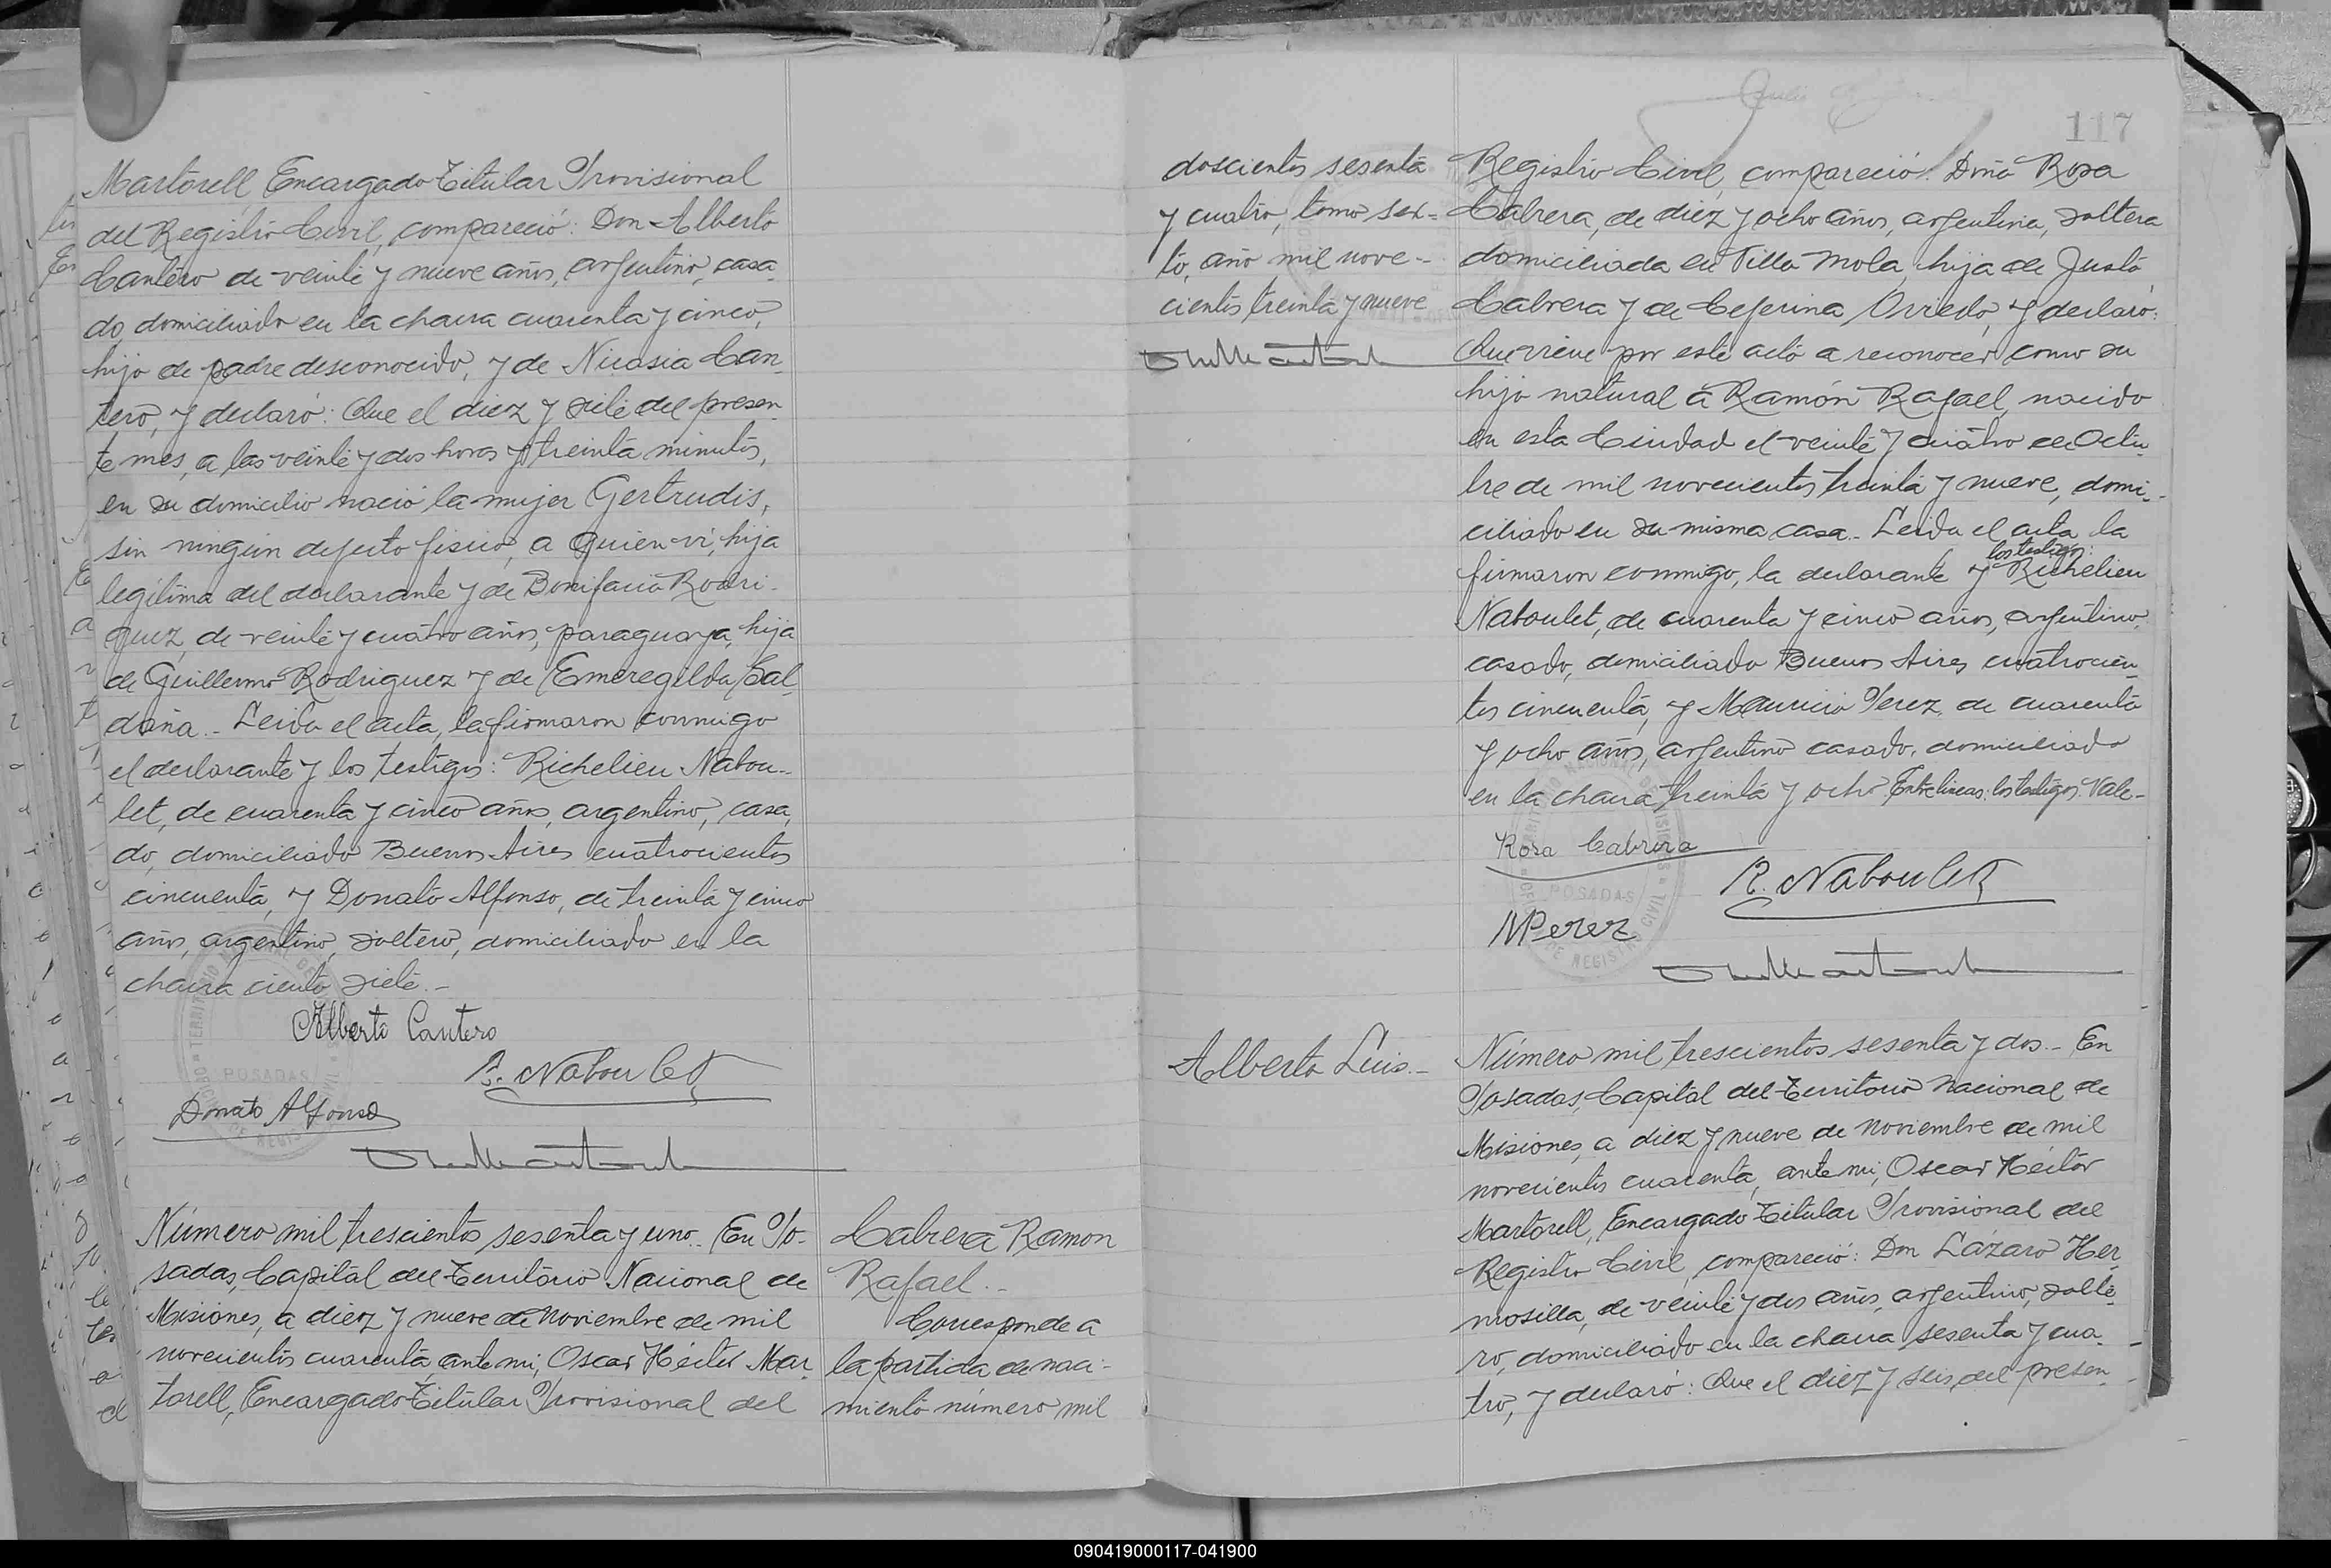 Martorell, Encargado Titular Provisional
del Registro Civil, compareció: Don Alberto
Cantero de veinte y nueve años, argentino, casa-
do, domiciliado en la chacra cuarenta y cinco,
hijo de padre desconocido, y de Nicasia Can-
tero, y declaró: Que el diez y siete del presen-
te mes, a las veinte y dos horas y treinta minutos,
en su domicilio nació la mujer Gertrudis,
sin ningún defecto fisico, a quien vi, hija
legítima del declarante y de Bonifacia Rodri-
guez, de veinte y cuatro años, paraguaya, hija
de Guillermo Rodriguez y de Emeregilda Sal-
daña.- Leida el acta, la firmaron conmigo
el declarante y los testigos: Richelieu Nabou-
let, de cuarenta y cinco años, argentino, casa-
do, domiciliado Buenos Aires cuatrocientos
cincuenta, y Donato Alfonso, de treinta y cinco
años, argentino, soltero, domiciliado en la
chacra ciento siete.-
Alberto Cantero
R. Naboulet
Donato Alfonso
Número mil trescientos sesenta y uno.- En Po-
sadas, Capital del Territorio Nacional de
Misiones, a diez y nueve de Noviembre de mil
novecientos cuarenta, ante mi, Oscar Héctor Mar-
torell, Encargado Titular Provisional del
Cabrera Ramon
Rafael.-
Corresponde a
la partida de naci-
miento número mil
117
doscientos sesenta
y cuatro, tomo sex-
to, año mil nove-
cientos treinta y nueve
Registro Civil, compareció: Doña Rosa
Cabrera, de diez y ocho años, argentina, soltera
domiciliada en Villa Mola, hija de Justo
Cabrera y de Ceferina Oviedo, y declaró:
Que viene por este acto a reconocer como su
hijo natural a Ramón Rafael, nacido
en esta Ciudad el veinte y cuatro de Octu-
bre de mil novecientos treinta y nueve, domi-
ciliado en su misma casa.- Leida el acta la
los testigos:
firmaron conmigo, la declarante y Richelieu
Naboulet, de cuarenta y cinco años, argentino,
casado, domiciliado Buenos Aires cuatrocien-
tos cincuenta, y Mauricio Perez, de cuarenta
y ocho años, argentino casado, domiciliado
en la chacra treinta y ocho. Entre lineas: los testigos. Vale-
Rosa Cabrera
R. Naboulet
M Perez
POSADAS
Alberto Luis.-
Número mil trescientos sesenta y dos.- En
Posadas, Capital del Territorio Nacional de
Misiones, a diez y nueve de Noviembre de mil
novecientos cuarenta, ante mi, Oscar Héctor
Martorell, Encargado Titular Provisional del
Registro Civil, compareció: Don Lázaro Her-
mosilla, de veinte y dos años, argentino, solte-
ro, domiciliado en la chacra sesenta y cua-
tro, y declaró: Que el diez y seis del presen-
090419000117-041900